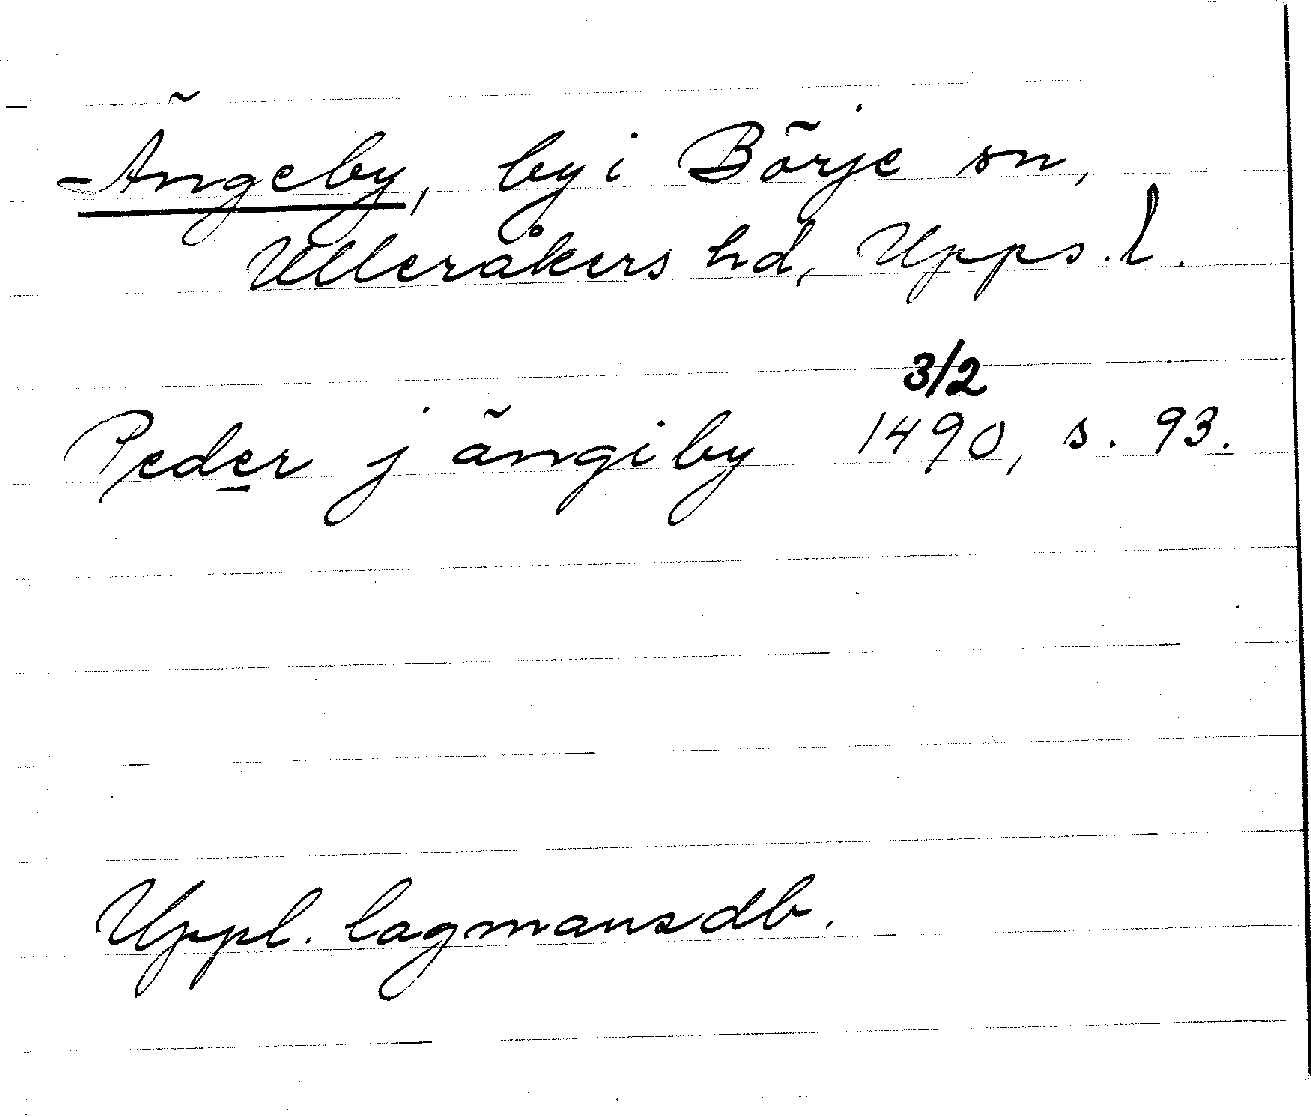 Ängeby, by i Börje sn,
Ulleråkers hd, Upps. l.
3/2
Peder j ängiby 1490, s. 93.
Uppl. lagmansdb.